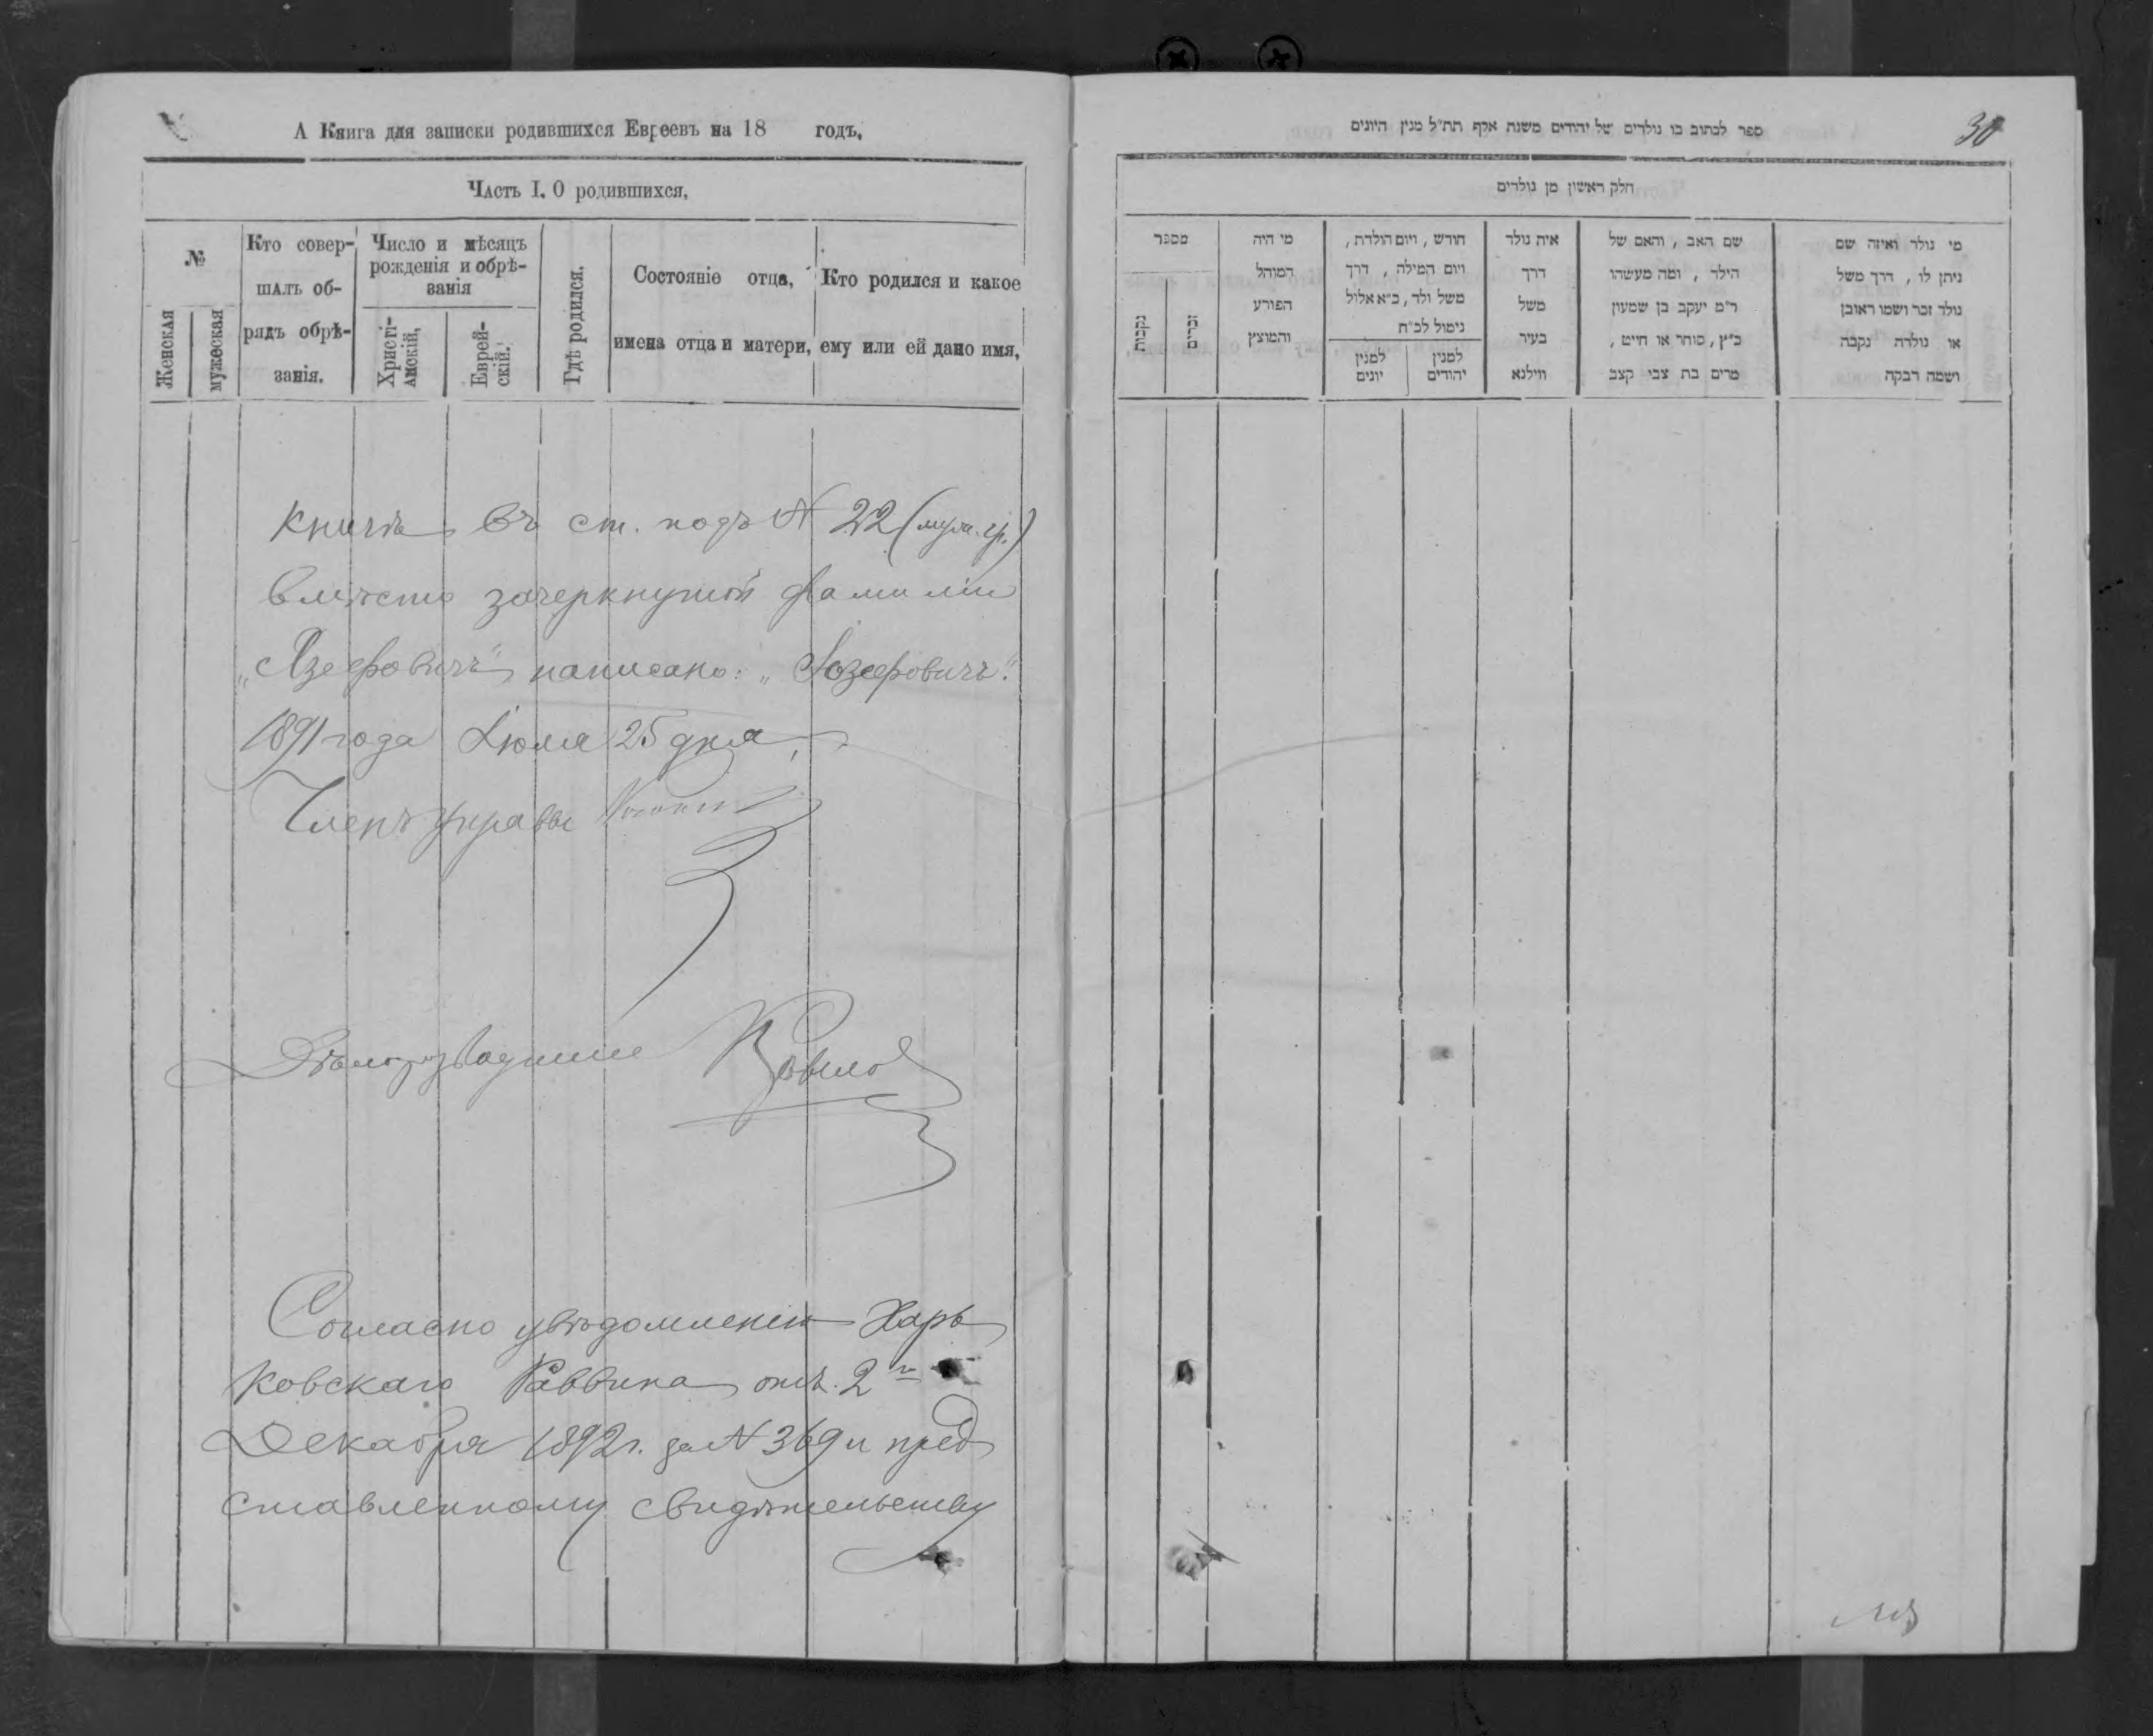 А Книга для записки родившихся Евреевъ на 18 годъ,
Часть I. О родившихся,
№
Женская
мужеская
Кто совер-
шалъ об-
рядъ обрѣ-
занія.
Число и мѣсяцъ
рожденія и обрѣ-
занія
Христі-
анскій,
Еврей-
скій.
Гдѣ родился.
Состояніе отца,
имена отца и матери,
Кто родился и какое
ему или ей дано имя,
книгѣ въ ст. подъ № 22 (муж. гр.)
вмѣсто зачеркнутой фамиліи
„Азефовичъ" написано: „Іозефовичъ".
1891 года Іюля 25 дня,
Членъ управы
Дѣлопроизводитель
Согласно увѣдомленію Харь
ковскаго Раввина отъ 2го
Декабря 1892 г. за № 369 и пред
ставленному свидѣтельству
ספר לכתוב בו נולדים של יהודים משנת אלף תת״ל מנין היונים
30
חלק ראשון מן נולדים
מי נולד ואיזה שם
ניתן לו , דרך משל
נולד זכר ושמו ראובן
או נולדה נקבה
ושמה רבקה
שם האב , והאם של
הילד , ומה מעשהו
ר״מ יעקב בן שמעון
כ״ץ , סוחר או חייט ,
מרים בת צבי קצב
איה נולד
דרך
משל
בעיר
ווילנא
חודש , ויום הולדת ,
ויום המילה , דרך
משל ולד , כ״א אלול
נימול לכ״ח
למנין
יהודים
למנין
יונים
מי היה
המוהל
הפורע
והמוצץ
מספר
זכרים
נקבות